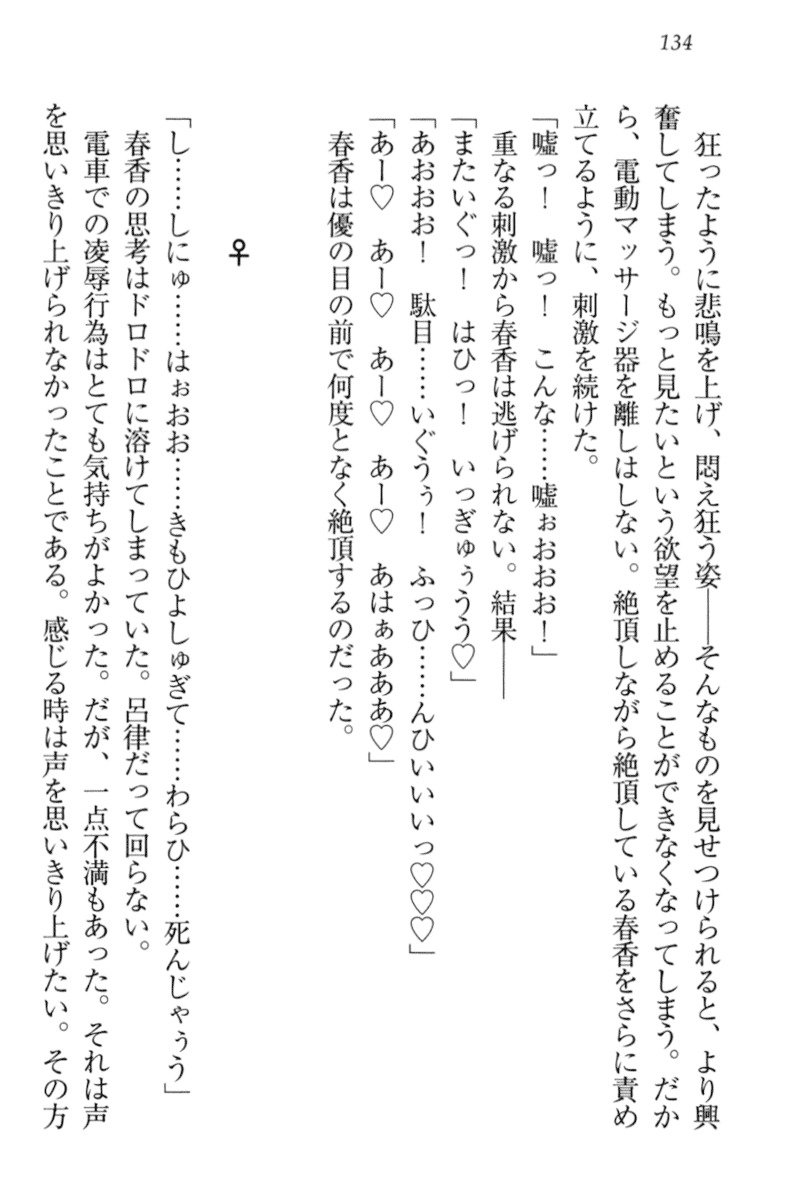 134
狂ったように悲鳴を上げ、悶え狂う姿――そんなものを見せつけられると、より興
奮してしまう。もっと見たいという欲望を止めることができなくなってしまう。だか
ら、電動マッサージ器を離しはしない。絶頂しながら絶頂している春香をさらに責め
立てるように、刺激を続けた。
「嘘っ！　嘘っ！　こんな……嘘ぉおおお！」
重なる刺激から春香は逃げられない。結果――
「またいぐっ！　はひっ！　いっぎゅぅうう♡」
「あおおお！　駄目……いぐうぅ！　ふっひ……んひいいいっ♡♡♡」
「あー♡　あー♡　あー♡　あー♡　あはぁあああ♡」
春香は優の目の前で何度となく絶頂するのだった。
♀
「し……しにゅ……はぉおお……きもひよしゅぎて……わらひ……死んじゃぅう」
春香の思考はドロドロに溶けてしまっていた。呂律だって回らない。
電車での凌辱行為はとても気持ちがよかった。だが、一点不満もあった。それは声
を思いきり上げられなかったことである。感じる時は声を思いきり上げたい。その方